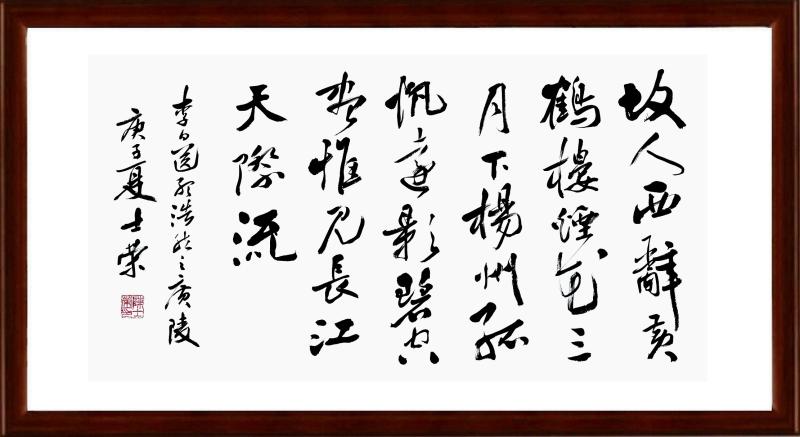 故人西辭黄
鶴樓煙花三
月下楊州孤
帆遠影碧空
盡惟見長江
天際流
李白送孟浩然之廣陵
庚子夏士榮